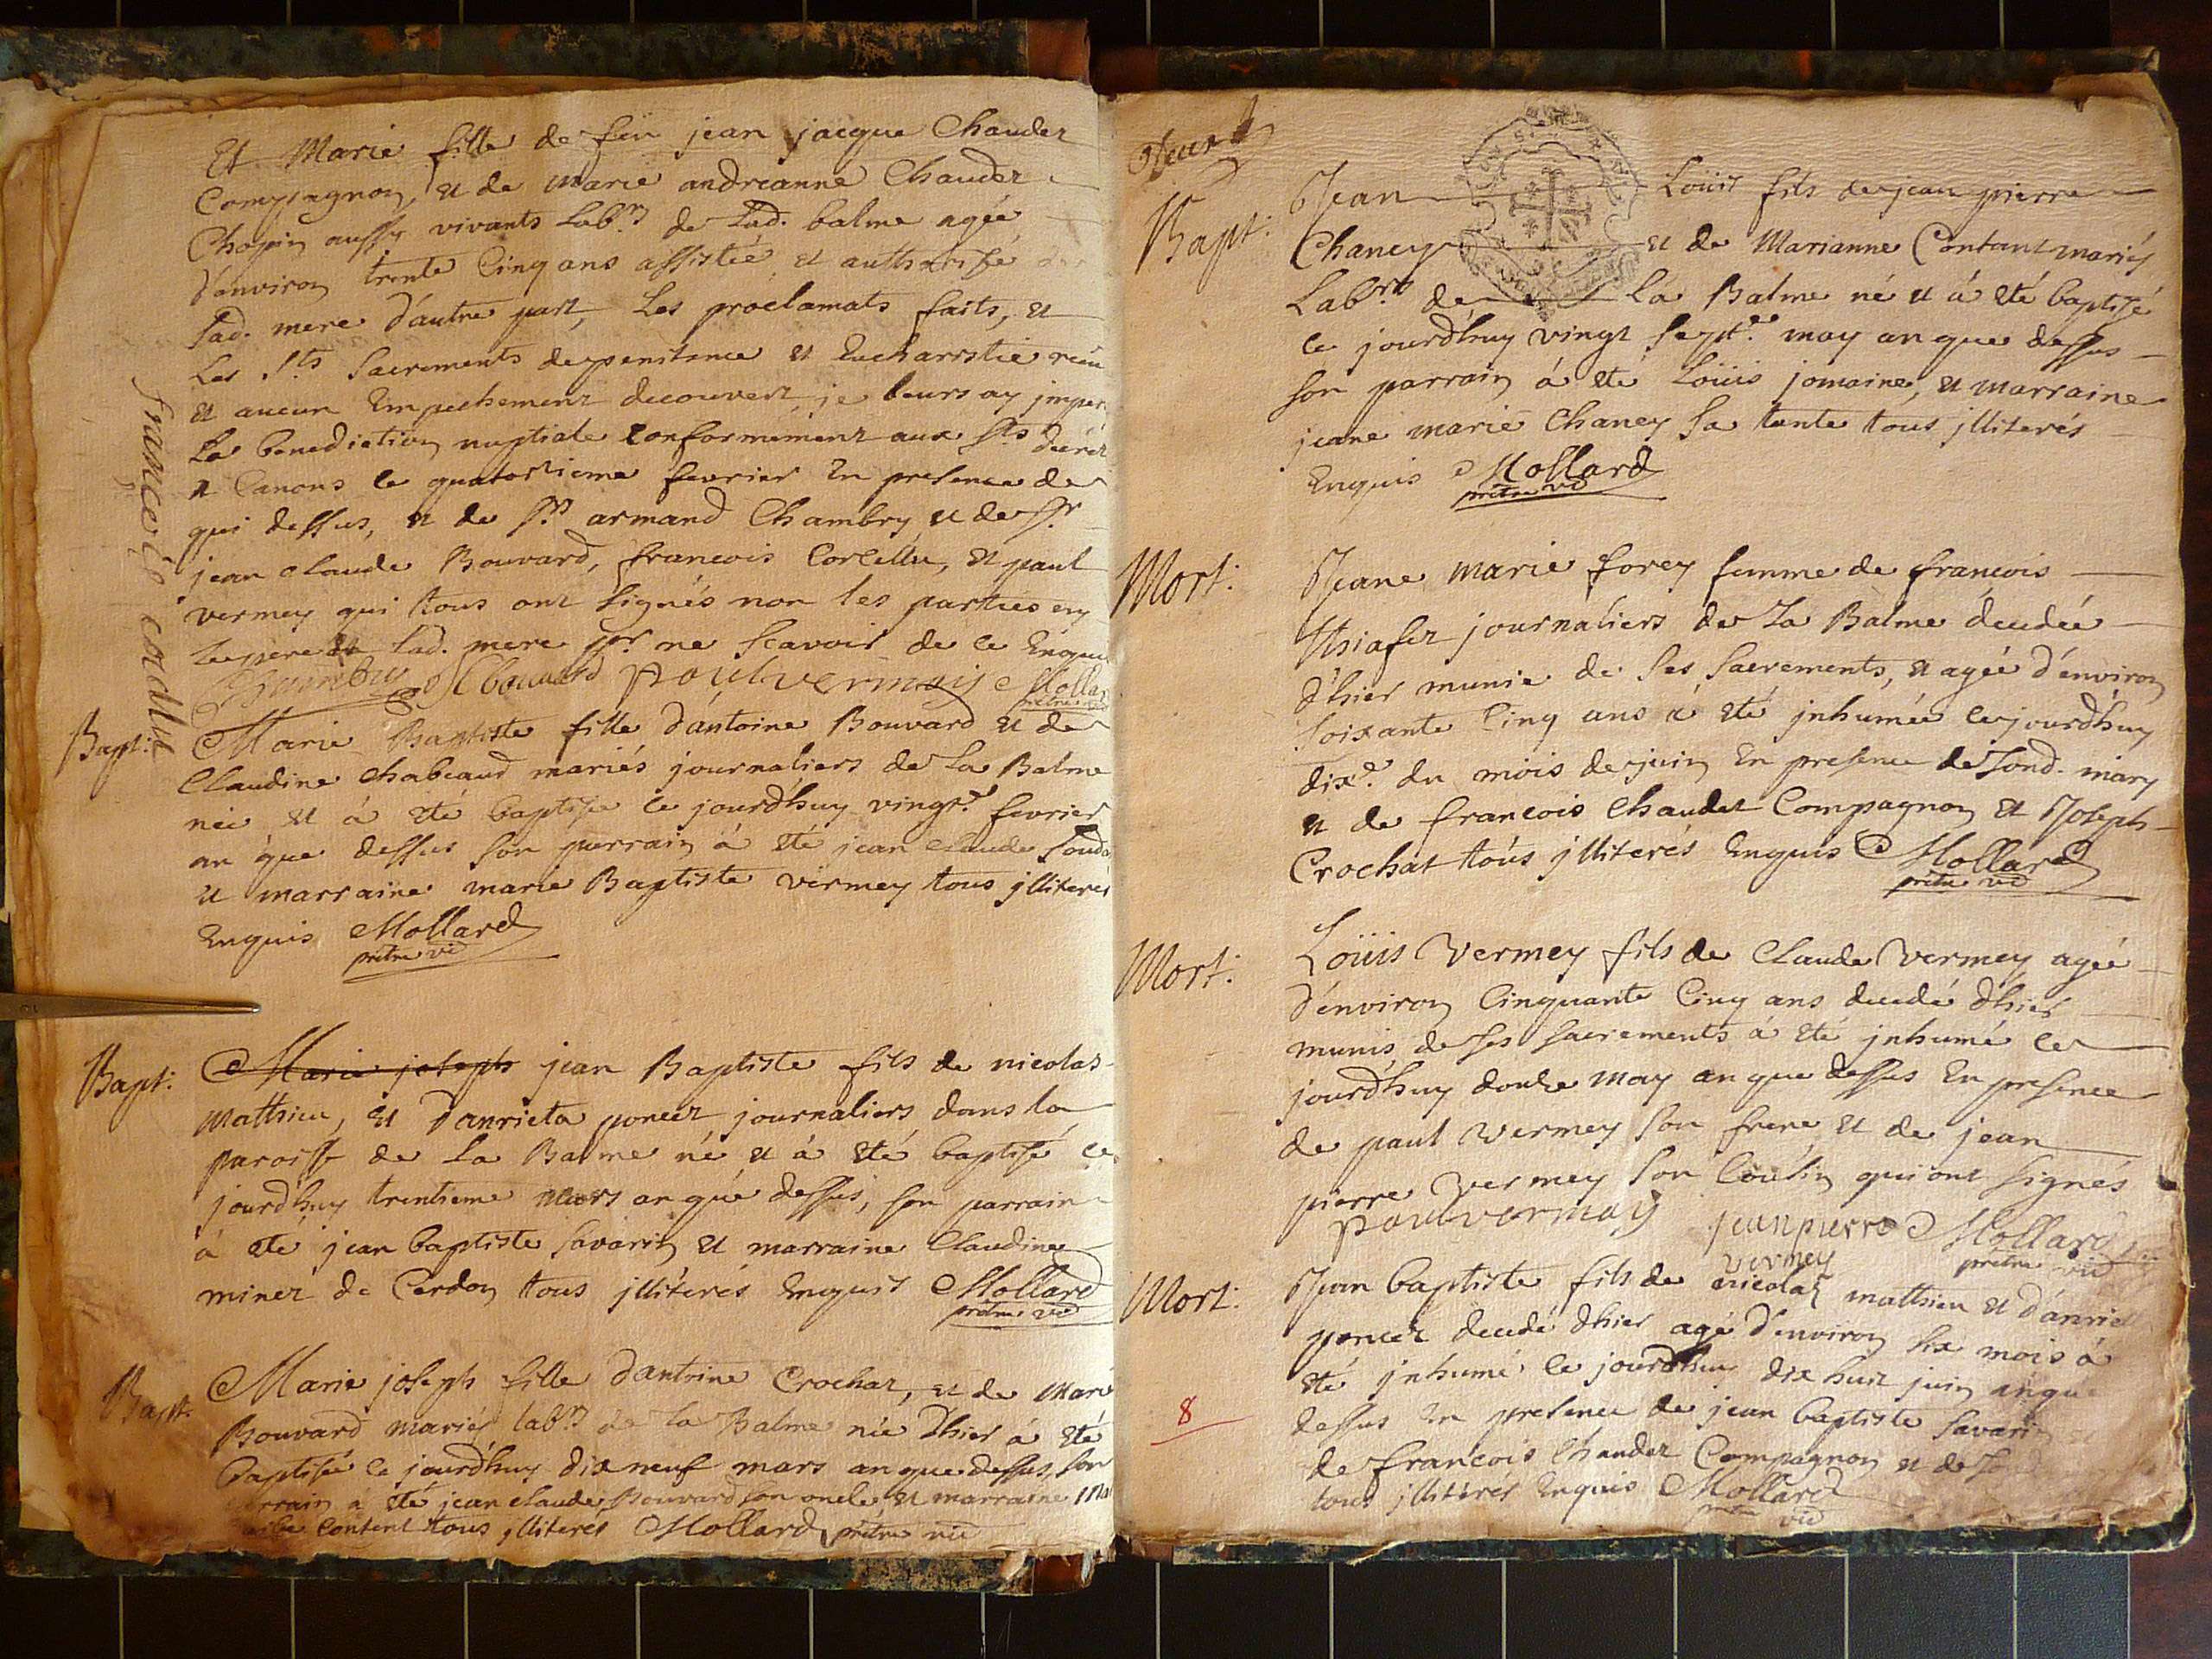 Et Marie fille de feu jean jacque Chaudet
Compagnon, et de marie andreanne Chaudet
Chapin aussy vivants lab.rs de lad. balme agée
d'environ trente Cinq ans assistée et authorisée
lad. mere d'autre part, Les proclamats faits, et
Les S.ts Sacrements de penitence et Eucharistie
et aucun Empechement decouvert je leurs ay
La benediction nuptiale conformement aux S.ts
et Canons le quatorzieme fevrier En presence de
qui dessus, et de S.r armand Chambry et de S.r
jean claude Bouvard, francois Cordellu, et paul
vermey qui tous ont signés non les parties
lad. mere pr ne scavoir de ce Enquis
Chambry JC bouvard paul vermey Mollard
prêtre
françois cordellu
Bapt: Marie Baptiste fille d'antoine Bouvard et de
Claudine chabeaud mariés journaliers de la Balme
née et à été baptisée ce jourd'huy vingt.e fevrier
an que dessus son parrain à été jean claude
et marraine marie Baptiste vermey tous illiterés
Enquis Mollard
prêtre vic
Bapt: Marie joseph jean Baptiste fils de nicolas
mathieu, et d'anrieta poncet journaliers dans la
paroisse de la Balme né et à été baptisé ce
jourd'huy trentieme mars an que dessus, son parrain
à été jean baptiste Savarin et marraine Claudine
minet de Cerdon tous illiterés Enquis Mollard
prêtre vic
Bapt: Marie joseph fille d'antoine Crochat, et de Marie
Bouvard mariés lab.rs de la Balme née d'hier à été
baptisée ce jourd'huy dix neuf mars an que dessus, son
parrain à été jean claude Bouvard son oncle et marraine
content tous illiterés Mollard prêtre vic
Bapt: Jean Loüis fils de jean pierre
Chaney et de Marianne Contant mariés
Lab.rs de La Balme né et à été baptisé
ce jourd'huy vingt sept.e may an que dessus
son parrain à été Loüis jomaine, et marraine
jeane marie Chaney sa tante tous illiterés
Enquis Mollard
prêtre vic
Mort: Jeane marie forey femme de françois
journaliers de La Balme decedée
d'hier munie de ses sacrements, et agée d'environ
soixante Cinq ans à été inhumée ce jourd'huy
dix.e du mois de juin En presence de sond. mary
et de francois Chaudet Compagnon et Joseph
Crochat tous illiterés Enquis Mollard
prêtre vic
Mort: Loüis Vermey fils de Claude Vermey agée
d'environ Cinquante Cinq ans decedé d'hier
munis de ses sacrements à été inhumé ce
jourd'huy douze may an que dessus En presence
de paul Vermey son frere et de jean
pierre Vermey son Cousin qui ont signés
paul vermay jean pierre Mollard
vermey prêtre vic
Mort: Jean baptiste fils de nicolas mathieu et d'anriet
poncet decedé d'hier agé d'environ six mois à
été inhumé ce jourd'huy dix huit juin an que
dessus En presence de jean baptiste Savarin
de francois Chaudet Compagnon et de
tous illiterés Enquis Mollard
prêtre vic
8